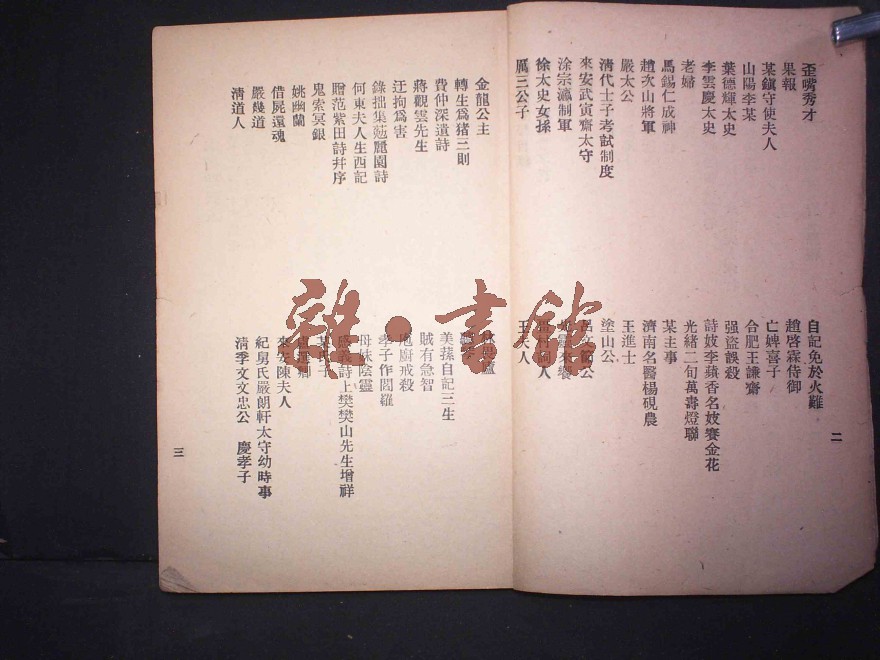 歪嘴秀才
果報
某鎭守使夫人
山陽李某
葉德輝太史
李雲慶太史
老婦
馬錫仁成神
趙次山將軍
嚴太公
清代士子考試制度
來安武寅齋太守
涂宗瀛制軍
徐太史女孫
厲三公子
自記免於火難
趙啓霖侍御
亡婢喜子
合肥王謙齋
强盜誤殺
詩妓李蘋香名妓賽金花
光緒二旬萬壽燈聯
某主事
濟南名醫楊硯農
王進士
塗山公
公
人
王夫人
二
金龍公主
轉生爲猪三則
費仲深遺詩
蔣觀雲先生
迂拘爲害
錄拙集蒞麗園詩
何東夫人生西記
贈范紫田詩幷序
鬼索冥銀
姚幽蘭
借屍還魂
嚴幾道
清道人
美蓀自記三生
賊有急智
廚戒殺
孝子作閻羅
母妹陰靈
感義詩上樊樊山先生增祥
來安陳夫人
紀舅氏嚴朗軒太守幼時事
清季文文忠公 慶孝子
三
雜·書館